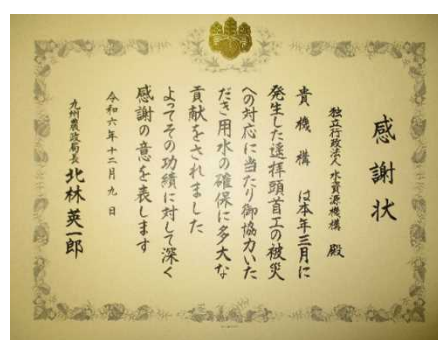 感謝状
独立行政法人 水資源機構 殿
貴機構は本年三月に
発生した遥拝頭首工の被災
への対応に当たり御協力いた
だき用水の確保に多大な
貢献をされました
よってその功績に対して深く
感謝の意を表します
令和六年十二月九日
九州農政局長 北林英一郎